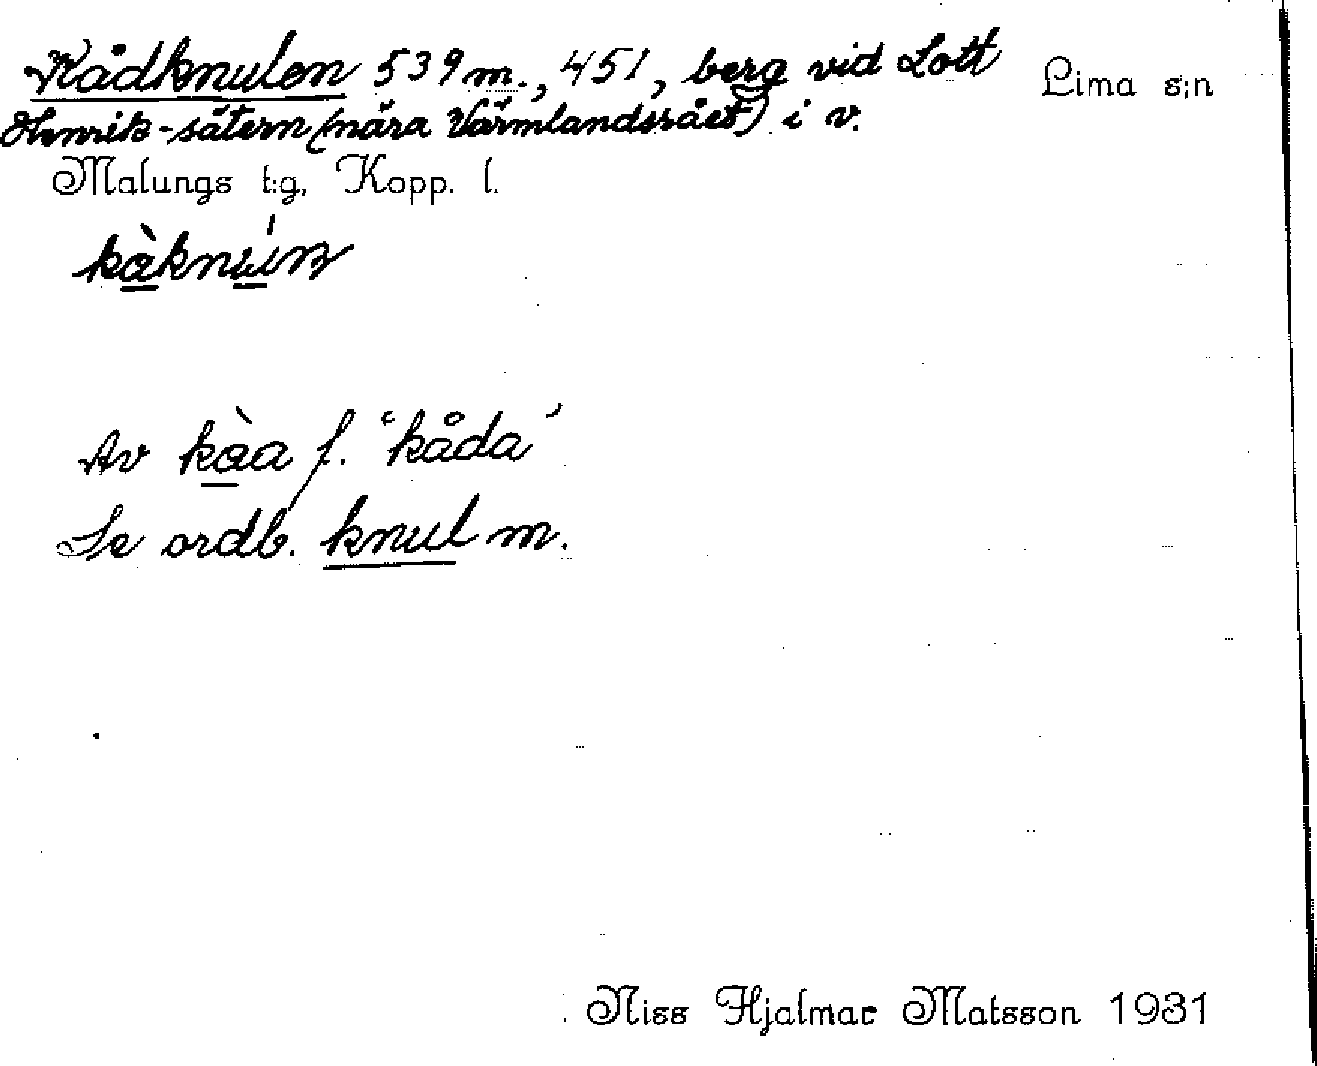 Kådknulen 539 m., 451, berg vid Lott Lima s;n
Henrik-sätern (nära Värmlandsrået) i v.
Malungs t:g, Kopp. l.
kàknún
Av kàa f. ‘kåda’
Se ordb. knul m.
Niss Hjalmar Matsson 1931